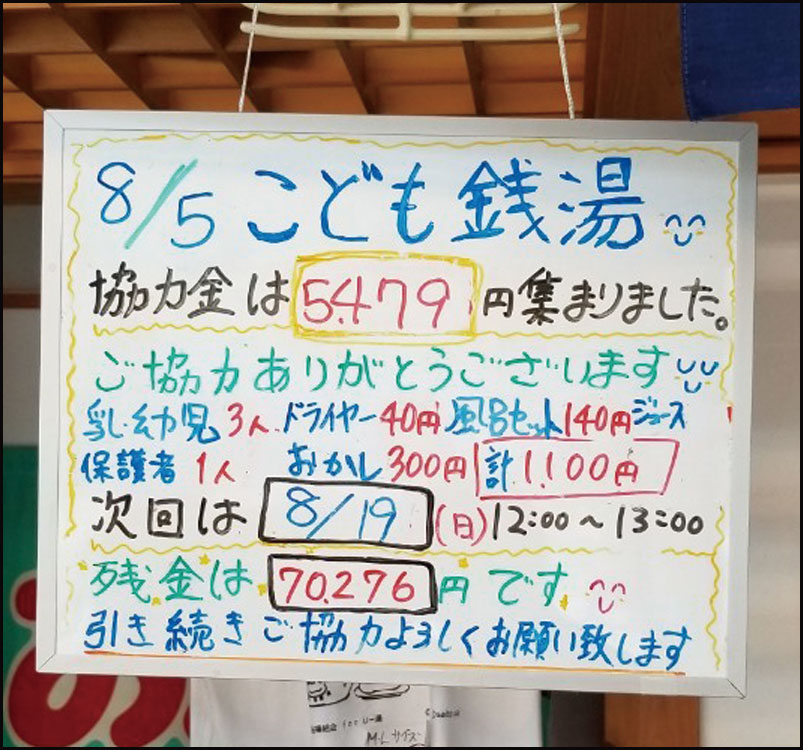 8/5 こども銭湯
協力金は 5.479 円集まりました。
ご協力ありがとうございます
乳・幼児 3人 ドライヤー 40円 風呂セット 140円 ジュース
保護者 1人 おかし 300円 計 1,100円
次回は 8/19 (日) 12:00~13:00
残金は 70.276 円です
引き続きご協力よろしくお願い致します
お
M・L サイズ